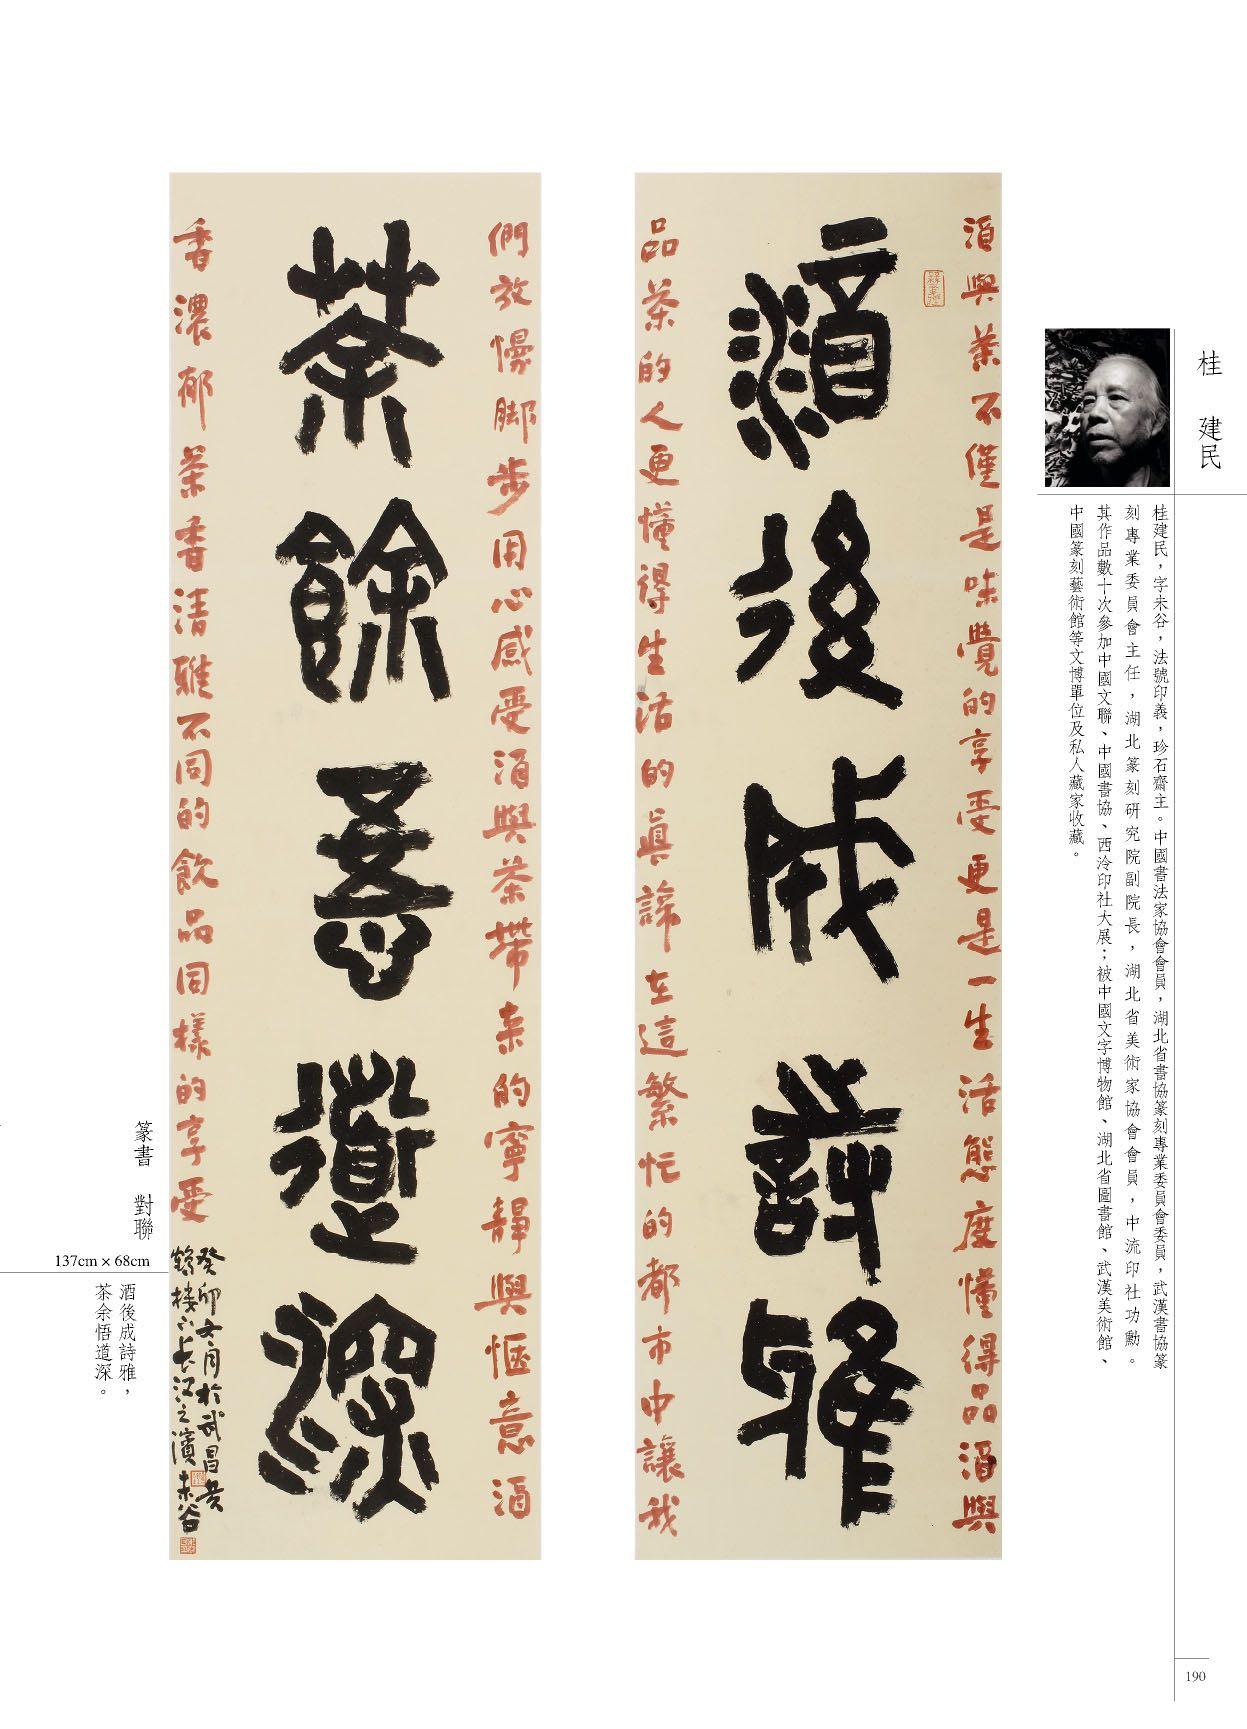 桂 建民
桂建民，字未谷，法號印義，珍石齋主。中國書法家協會會員，湖北省書協篆刻專業委員會委員，武漢書協篆
刻專業委員會主任，湖北篆刻研究院副院長，湖北省美術家協會會員，中流印社功勳。
其作品數十次參加中國文聯、中國書協、西泠印社大展；被中國文字博物館、湖北省圖書館、武漢美術館、
中國篆刻藝術館等文博單位及私人藏家收藏。
酒與茶不僅是味覺的享受更是一生活態度懂得品酒與
酒後成詩雅
品茶的人更懂得生活的真諦在這繁忙的都市中讓我
們放慢脚步用心感受酒與茶帶来的寧靜與愜意酒
茶餘悟道深
香濃郁茶香清雅不同的飲品同樣的享受
癸卯女月於武昌黄
鶴樓下長江之濱未谷
篆書 對聯
137cm × 68cm
酒後成詩雅，
茶余悟道深。
190